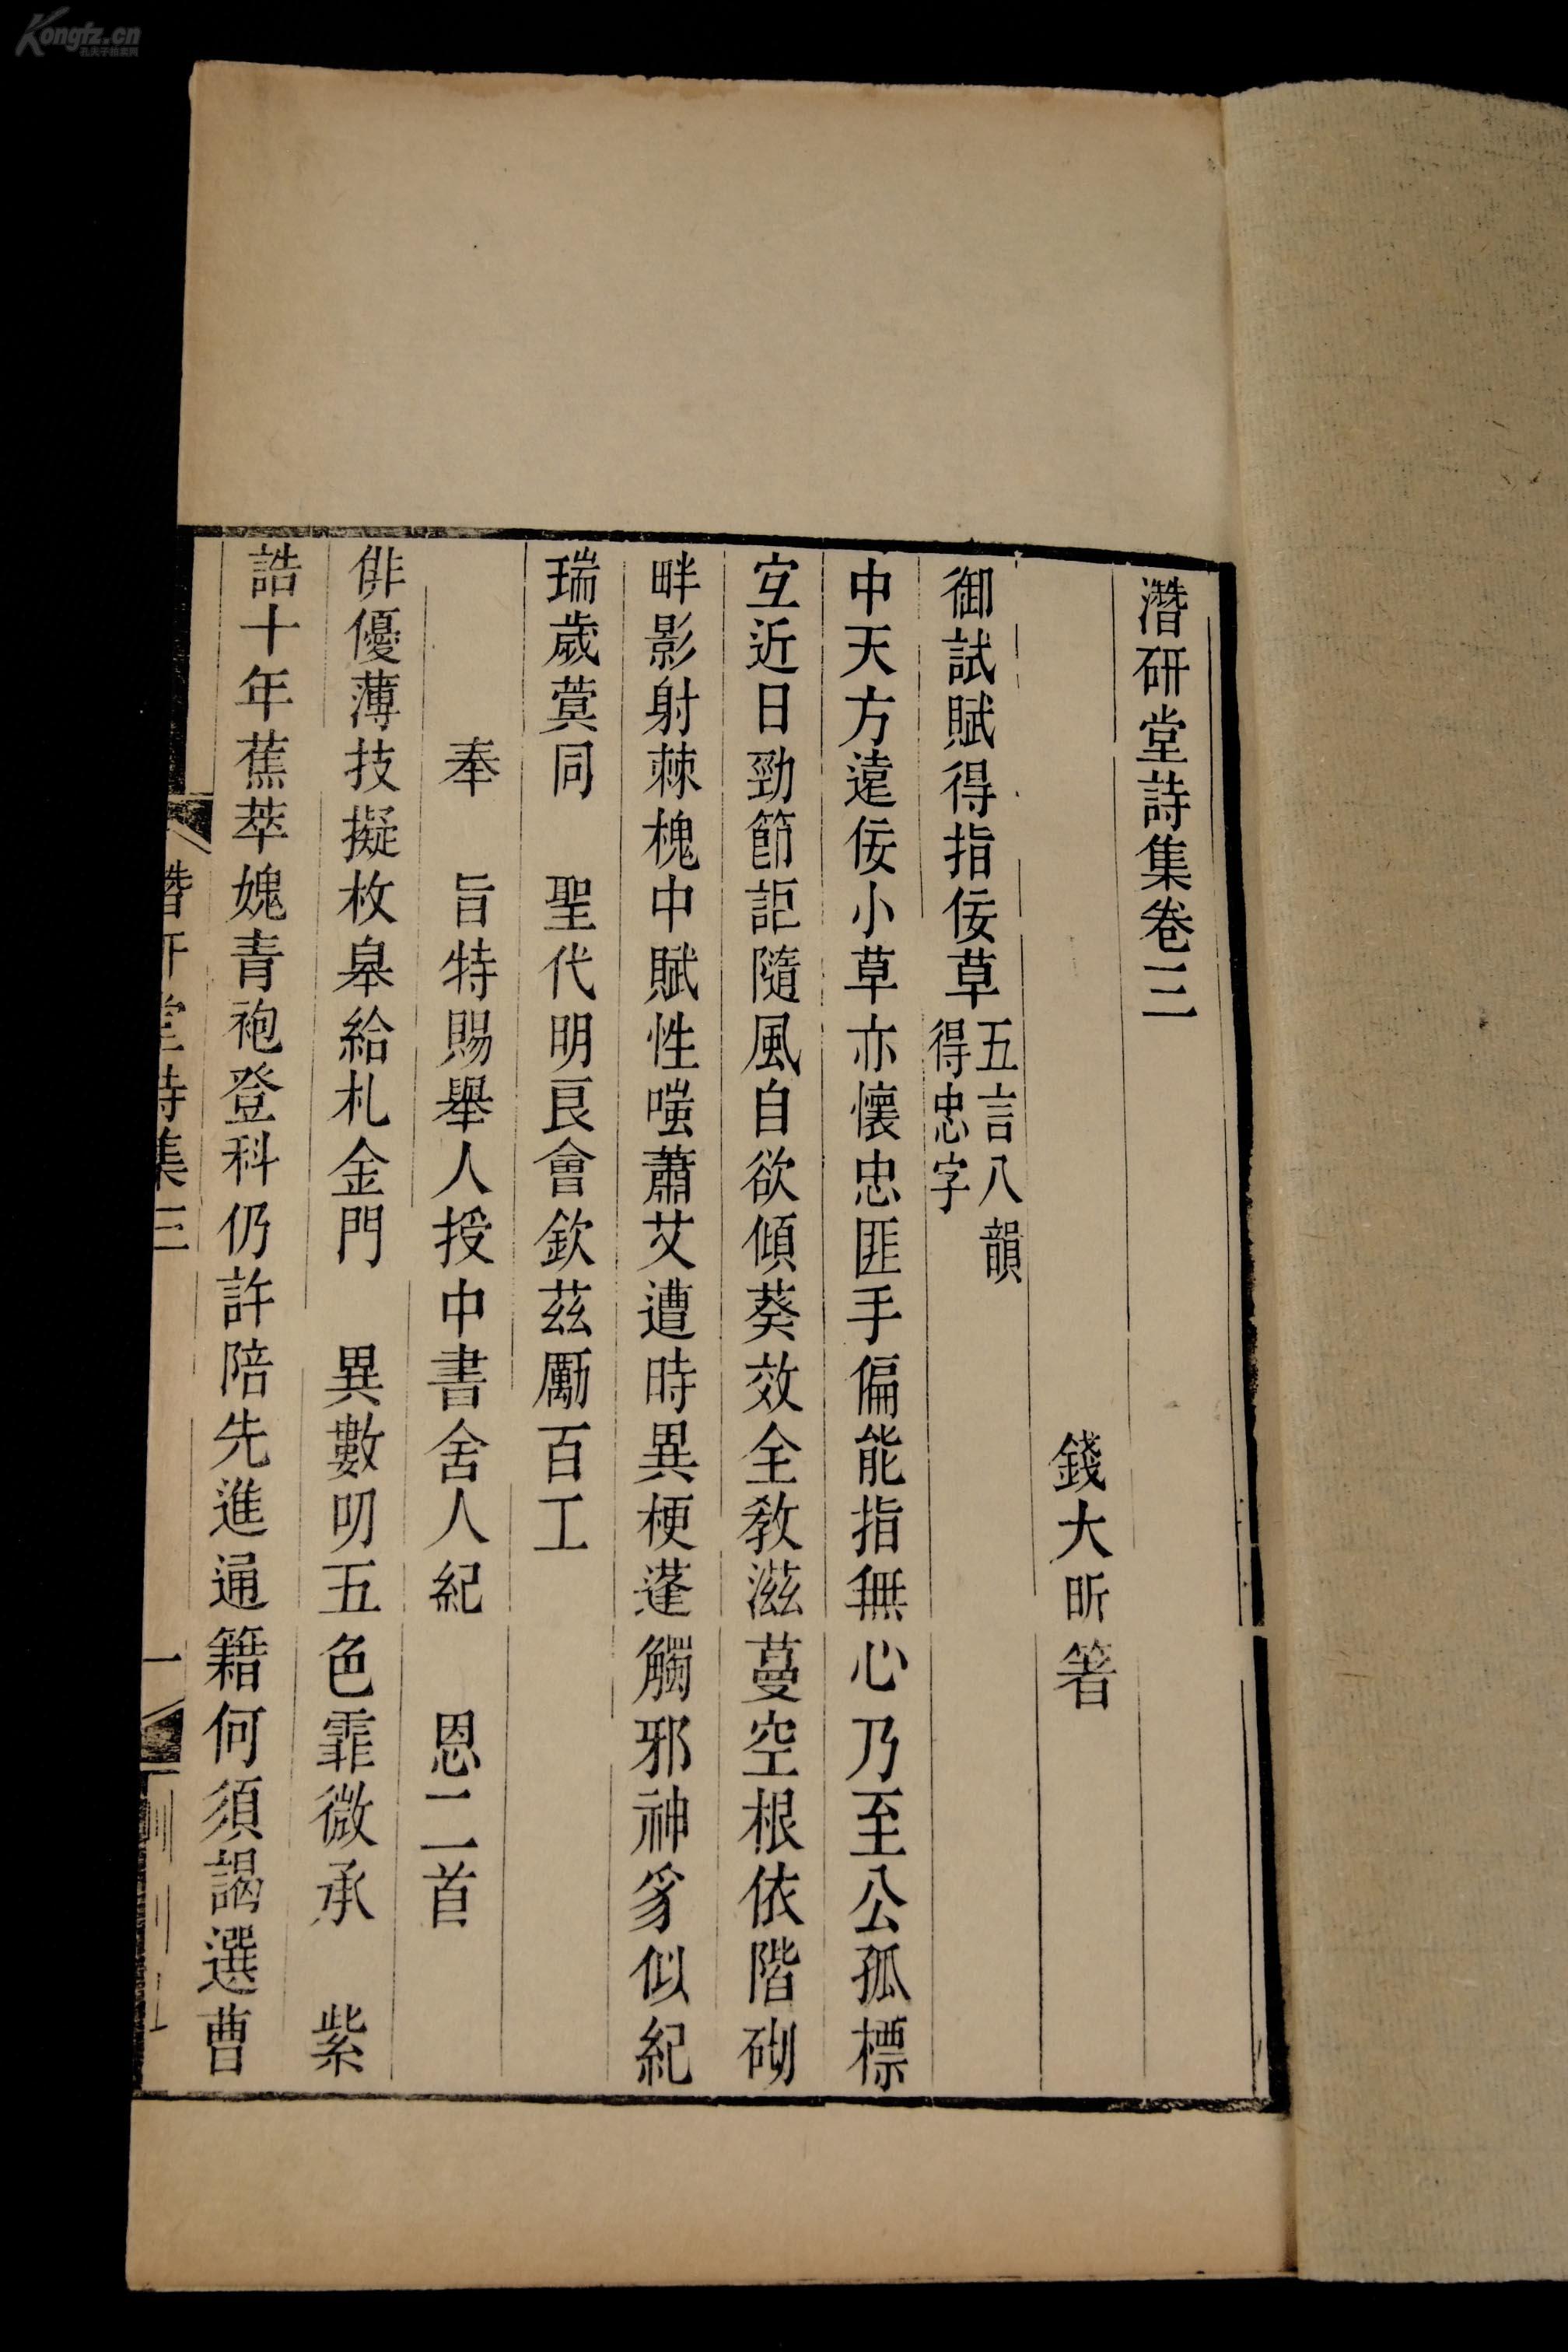 潛研堂詩集卷三
錢大昕箸
御試賦得指佞草五言八韻得忠字
中天方遠佞小草亦懷忠匪手偏能指無心乃至公孤標
宐近日勁節詎隨風自欲傾葵效全教滋蔓空根依階砌
畔影射棘槐中賦性嗤蕭艾遭時異梗蓬觸邪神豸似紀
瑞歲蓂同　聖代明良會欽茲勵百工
奉　旨特賜舉人授中書舍人紀　恩二首
俳優薄技擬枚皋給札金門　異數叨五色霏微承　紫
誥十年蕉萃媿青袍登科仍許陪先進通籍何須謁選曹
潛研堂詩集三
一
Kongfz.cn
孔夫子拍卖网